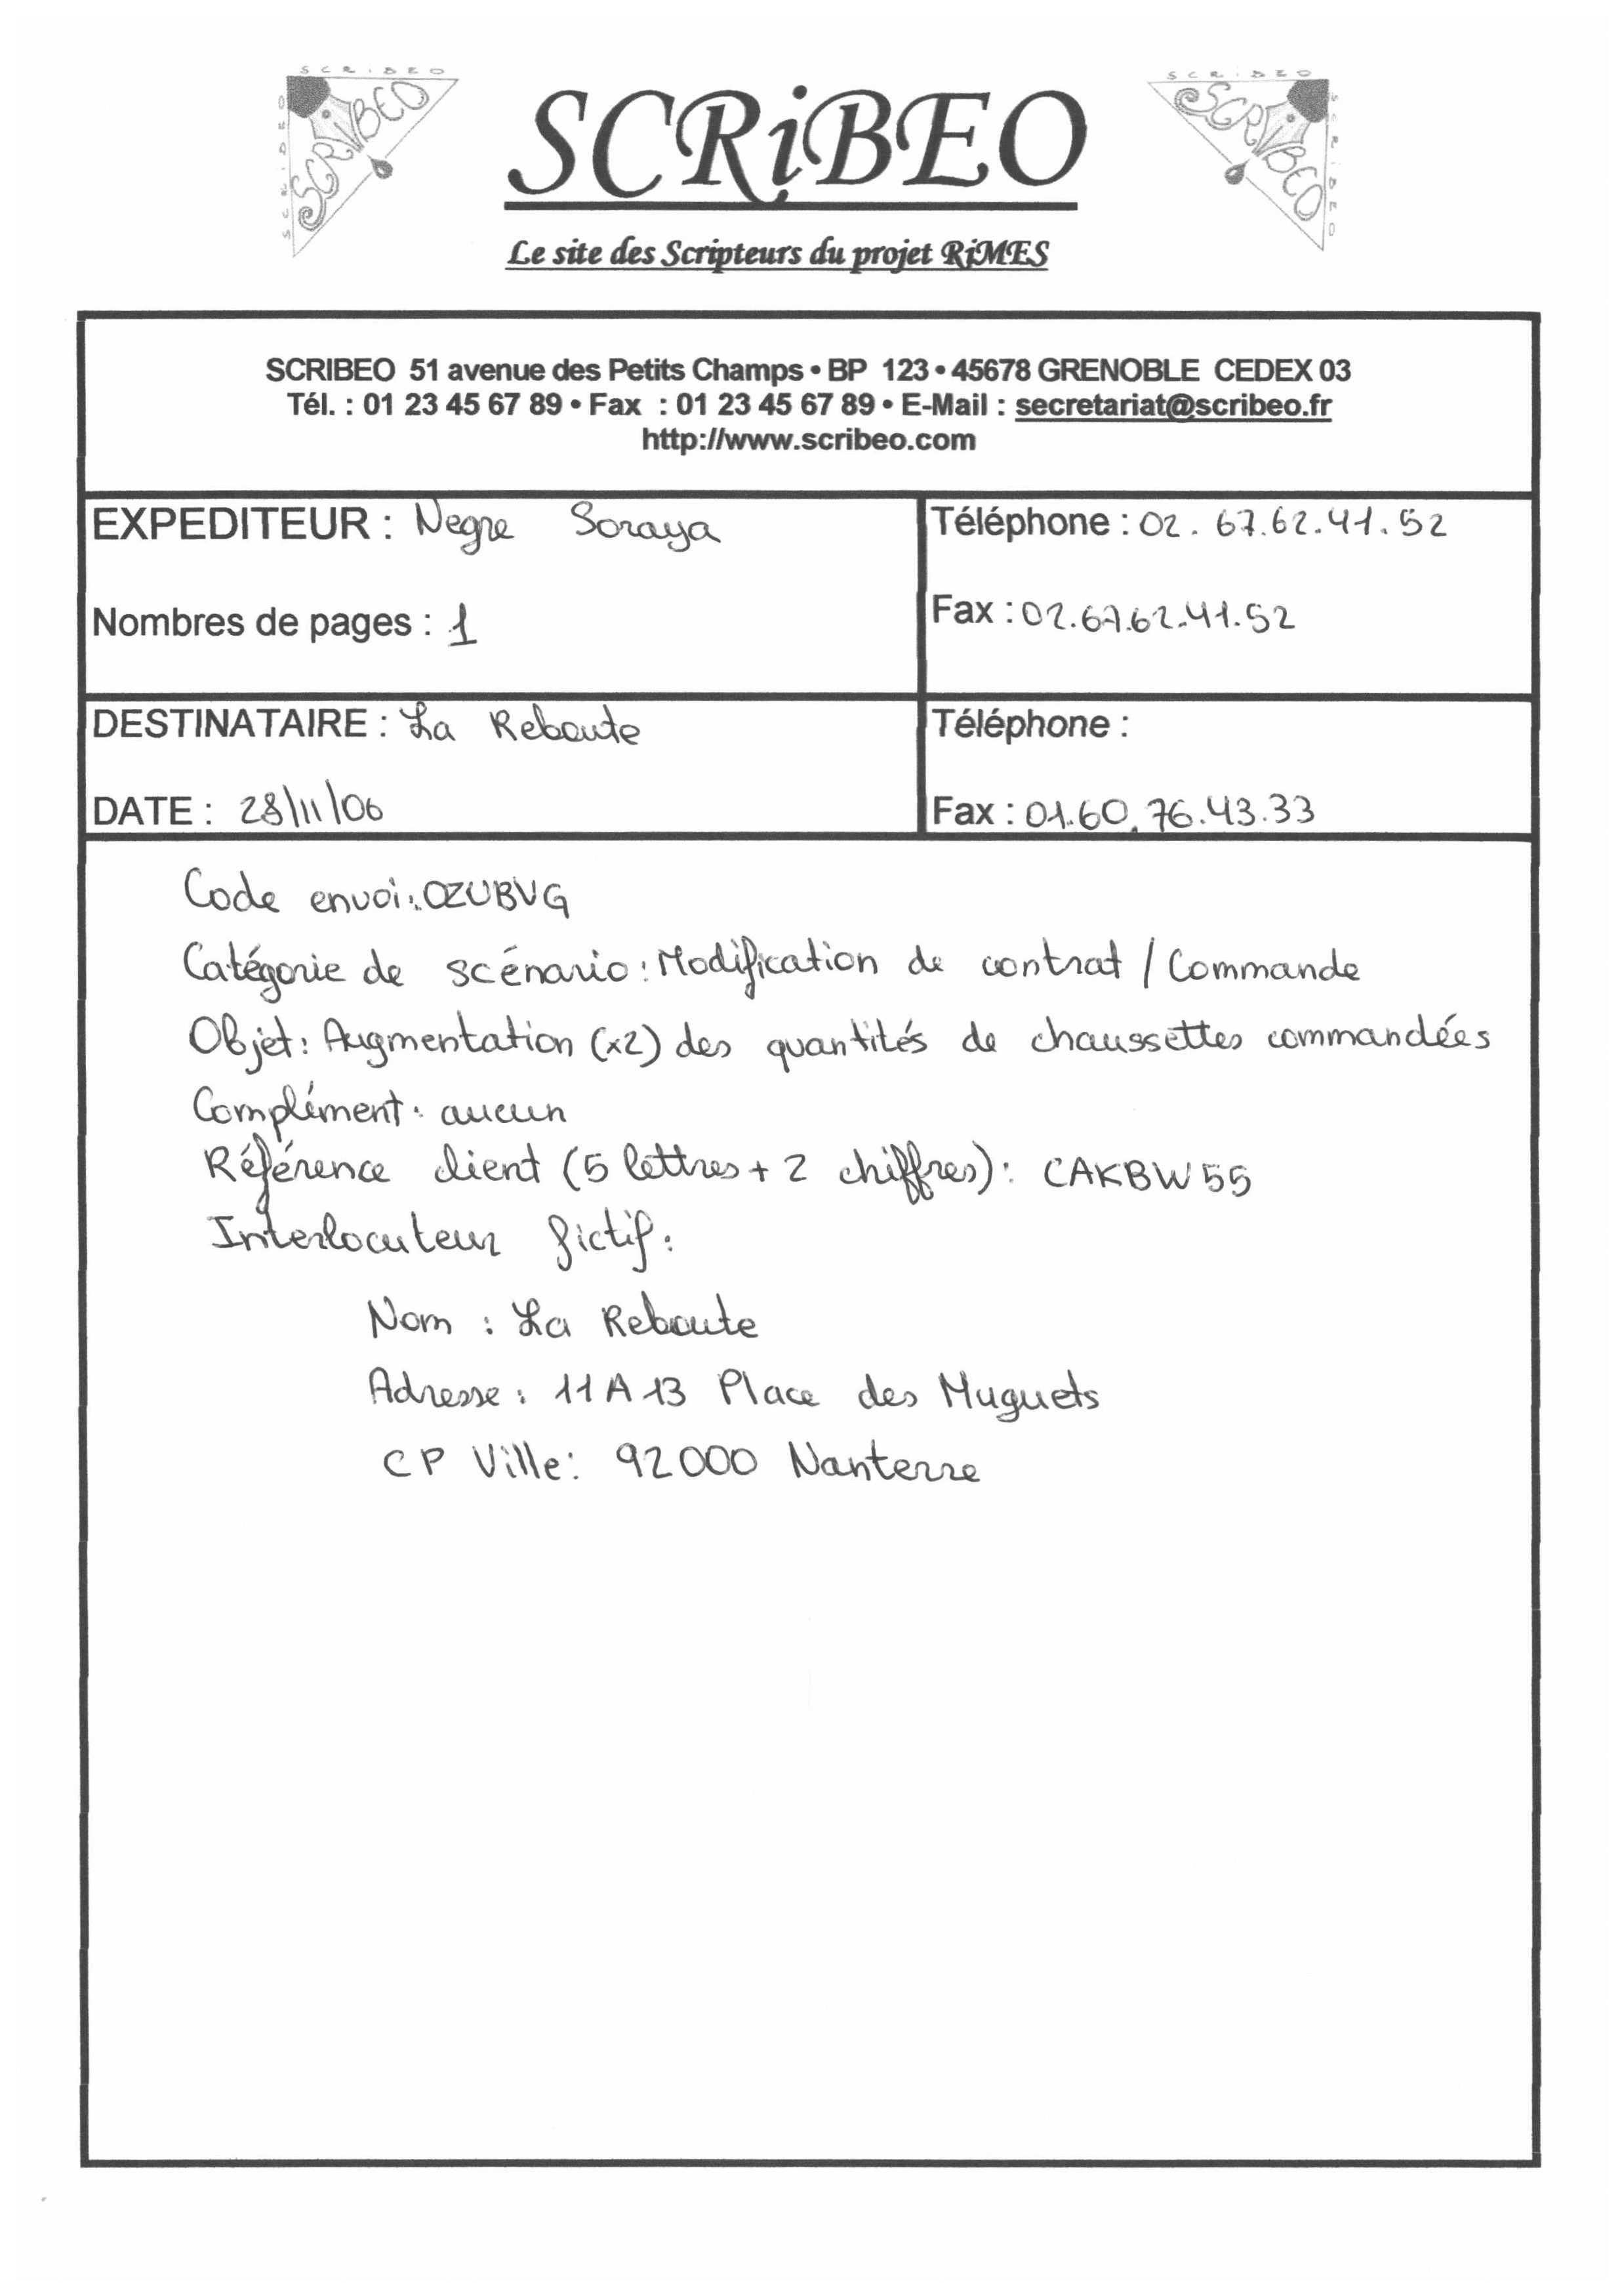 SCRiBEO
Le site des Scripteurs du projet RiMES
SCRIBEO 51 avenue des Petits Champs • BP 123 • 45678 GRENOBLE CEDEX 03
Tél. : 01 23 45 67 89 • Fax : 01 23 45 67 89 • E-Mail : secretariat@scribeo.fr
http://www.scribeo.com
EXPEDITEUR : Negre Soraya
Téléphone : 02.67.62.41.52
Nombres de pages : 1
Fax : 02.67.62.41.52
DESTINATAIRE : La Reboute
Téléphone :
DATE : 28\11\06
Fax : 01.60.76.43.33
Code envoi: OZUBVG
Catégorie de scénario : Modification de contrat / Commande
Objet: Augmentation (x2) des quantités de chaussettes commandées
Complément: aucun
Référence client (5 lettres + 2 chiffres): CAKBW55
Interlocuteur fictif:
Nom : La Reboute
Adresse : 11A13 Place des Muguets
CP Ville: 92000 Nanterre